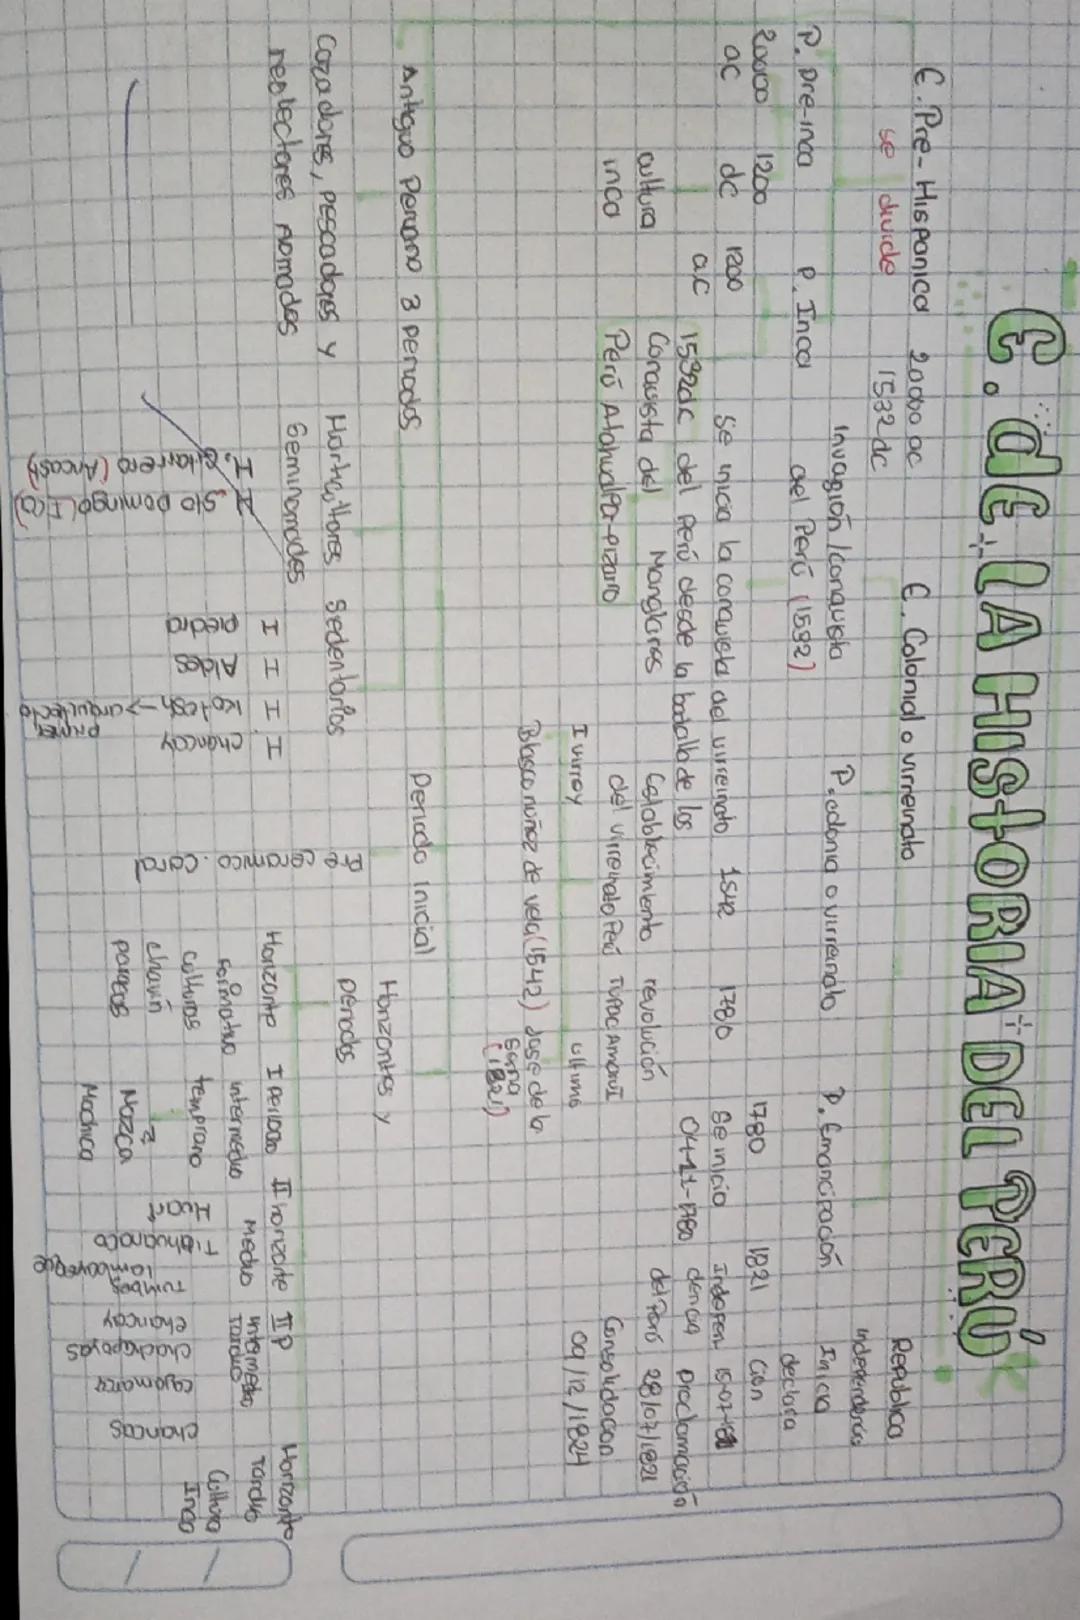 E. dE LA HIStORIA DEL PERÚ
E. Pre-Hispanica 20000 ac
1532 dc
se divide
E. Colonial o virreinato
Republica
independencia
Inicia
declara
P. pre-inca
P. Inca
Invasión/conquista
del Perú (1532)
P. colonia o virreinato
P. Emancipación
20000 ac
1200 dc
1200 a.c
1532dc
cultura
inca
Conquista del
Perú Atahualpa-pizarro
se inicia la conquista del virreinato
del Perú desde la batalla de los
Manglares
1542
1780
Establecimiento
del virreinato Perú
revolución
Tupac Amaru I
1780
Se inicio
04-11-1780
1821
Indepen
dencia
del Perú
ción
proclamación
28/07/1821
Consolidacion
09/12/1824
I virrey
ultimo
Blasco nuñez de vela (1542)
Jose de la
serna
(1821)
Antiguo Peruano 3 periodos
Periodo Inicial
Horizontes y
periodos
Cazadores, pescadores y
nomades
Horticultores
Seminomades
Sedentarios
I. Guitarrero (Ancash)
II. Sto Domingo (ICa)
I piedra
I Aldea
I Kotosh → arquitecto
primer
I chancay
Pre ceramico. Caral
Horizonte
formativo
culturas
chavin
paracas
I periodo
intermedio
temprano
Nazca
Mochica
II horizonte
Medio
Huari
Tiahuanaco
lambayeque
tumbes
II P
intermedio
tardio
chancay
chachapoyas
cajamarca
chancas
Horizonte
Tardio
Cultura
Inca